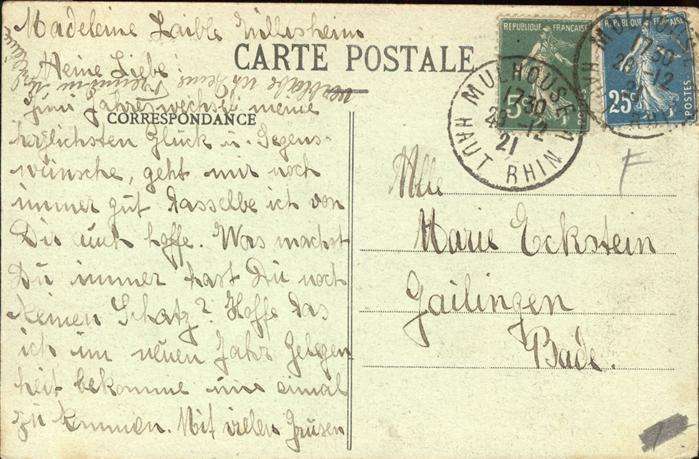 Madeleine Laible
CARTE POSTALE
Meine Liebe
zum Jahreswechsel meine
CORRESPONDANCE
herzlichsten Glück u. Segens-
wünsche, geht mir noch
immer gut dasselbe ich von
Dir auch hoffe. Was machst
Du immer hast Du noch
keinen Schatz? Hoffe das
ich im neuen Jahr Gelegen
heit bekomme uns einmal
zu kommen. Mit vielen Grüsen
verbleibe
REPUBLIQUE FRANÇAISE
5c
POSTES
REPUBLIQUE FRANÇAISE
25c
POSTES
MULHOUSE
17 30
12
21
HAUT RHIN
17 30
12
F
Mlle
Marie Eckstein
Gailingen
Bade.